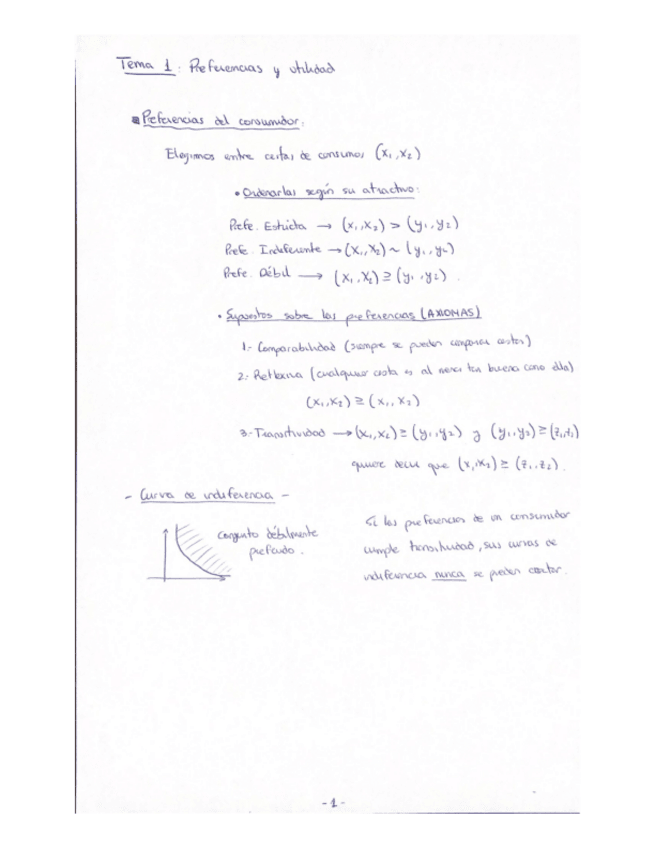 Tema 1: Preferencias y utilidad
Preferencias del consumidor:
Elegimos entre cestas de consumos (x₁,x₂)
• Ordenarlas según su atractivo:
Prefe. Estricta → (x₁,x₂) > (y₁,y₂)
Prefe. Indeferente → (x₁,x₂) ~ (y₁,y₂)
Prefe. Débil → (x₁,x₂) ≥ (y₁,y₂).
• Supuestos sobre las preferencias (AXIOMAS)
1.- Comparabilidad (siempre se pueden comparar cestas)
2.- Reflexiva (cualquier cesta es al menos tan buena como ella)
(x₁,x₂) ≥ (x₁,x₂)
3.- Transitividad → (x₁,x₂) ≥ (y₁,y₂) y (y₁,y₂) ≥ (z₁,z₂)
quiere decir que (x₁,x₂) ≥ (z₁,z₂).
- Curva de indiferencia -
Conjunto débilmente
preferido.
Si las preferencias de un consumidor
cumple transitividad, sus curvas de
indiferencia nunca se pueden cortar.
-1-